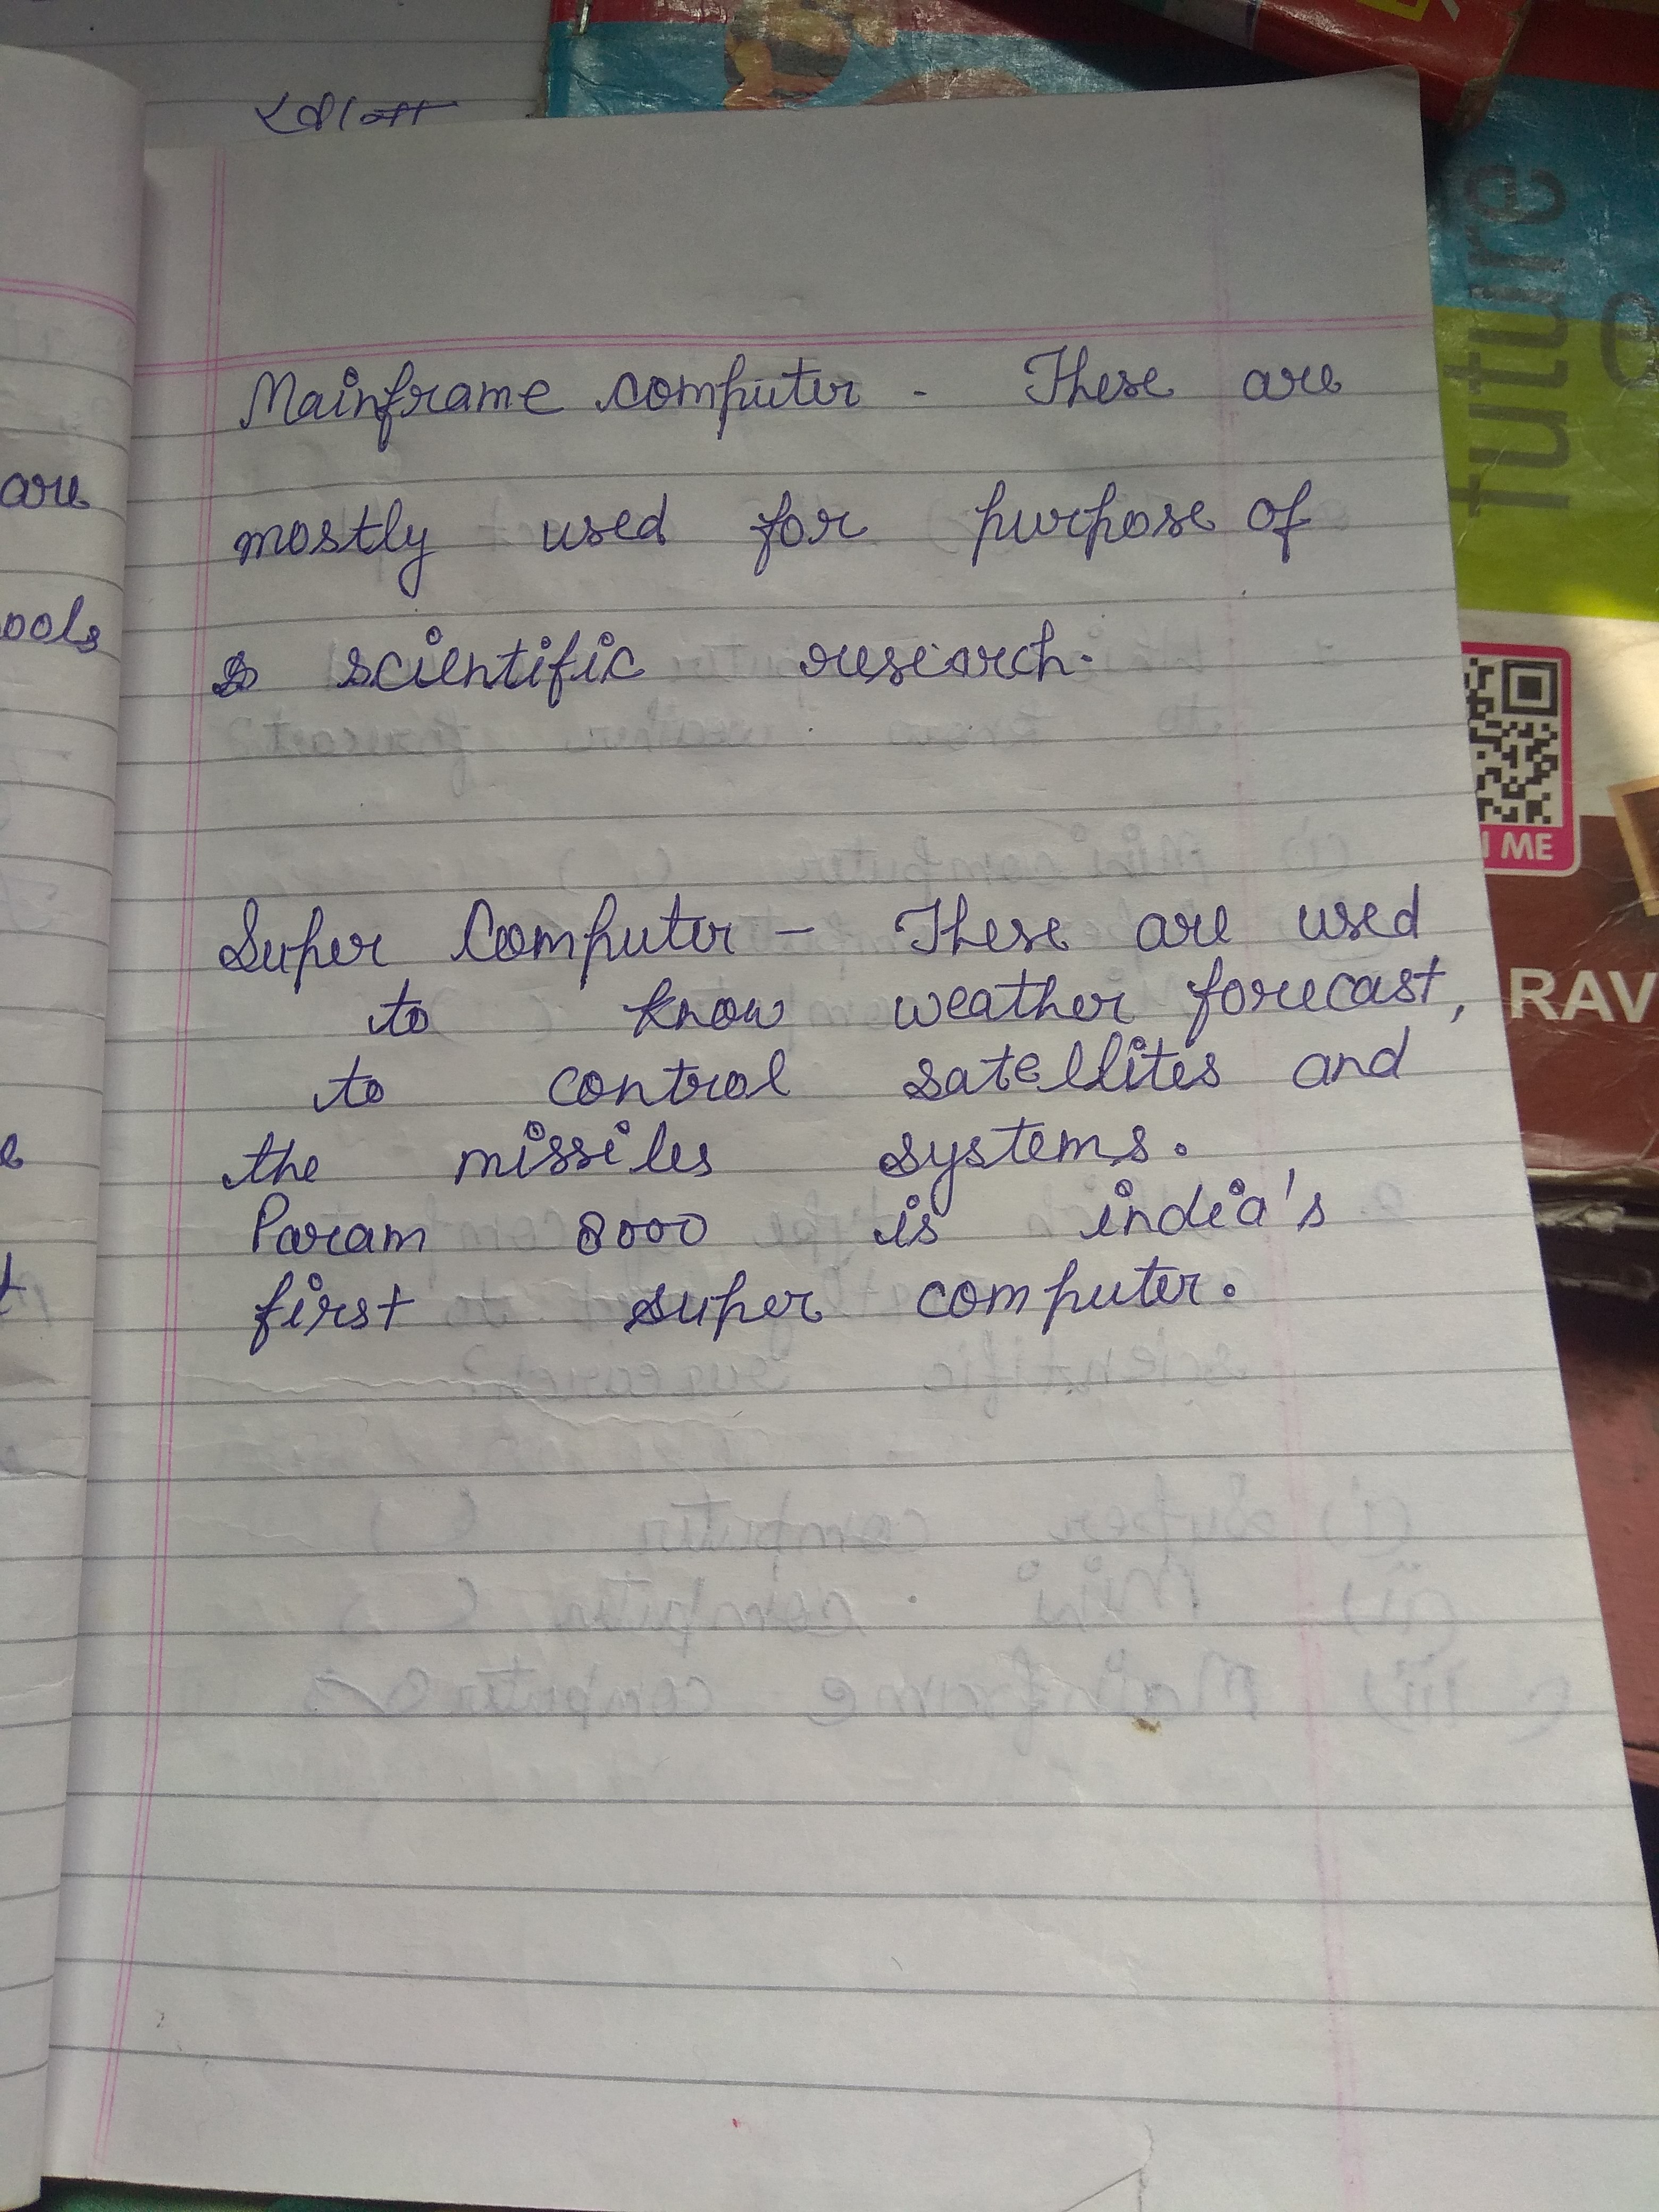 are
ools
Mainframe computer - These are
mostly used for purpose of
scientific research.
Super Computer - These are used
to know weather forecast,
to control satellites and
the missiles systems.
Param 8000 is india's
first super computer.
future
ME
RAV